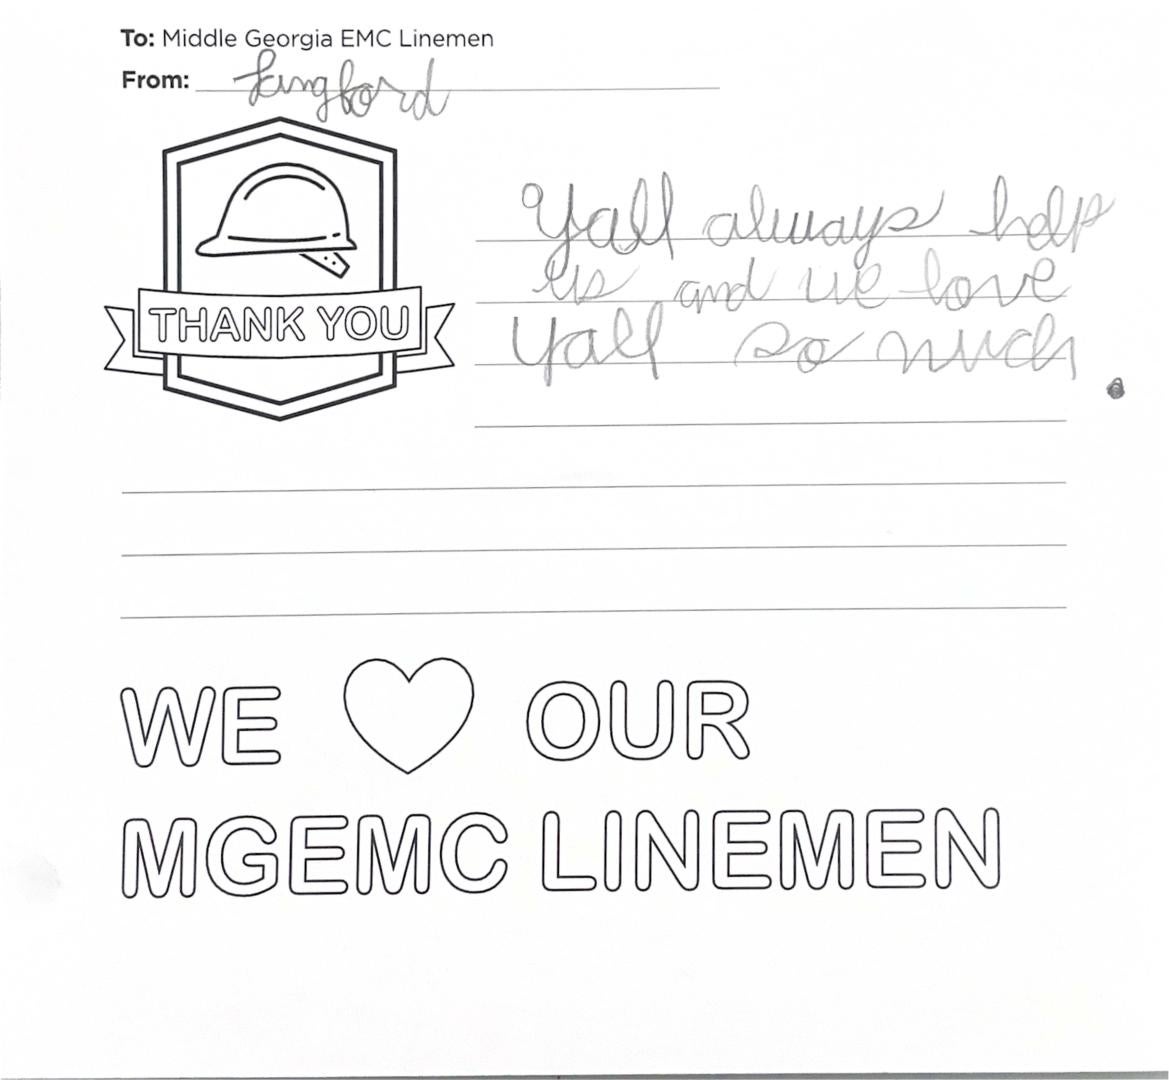 To: Middle Georgia EMC Linemen
From: Langford
THANK YOU
Yall always help
us and we love
Yall so much.
WE OUR
MGEMC LINEMEN